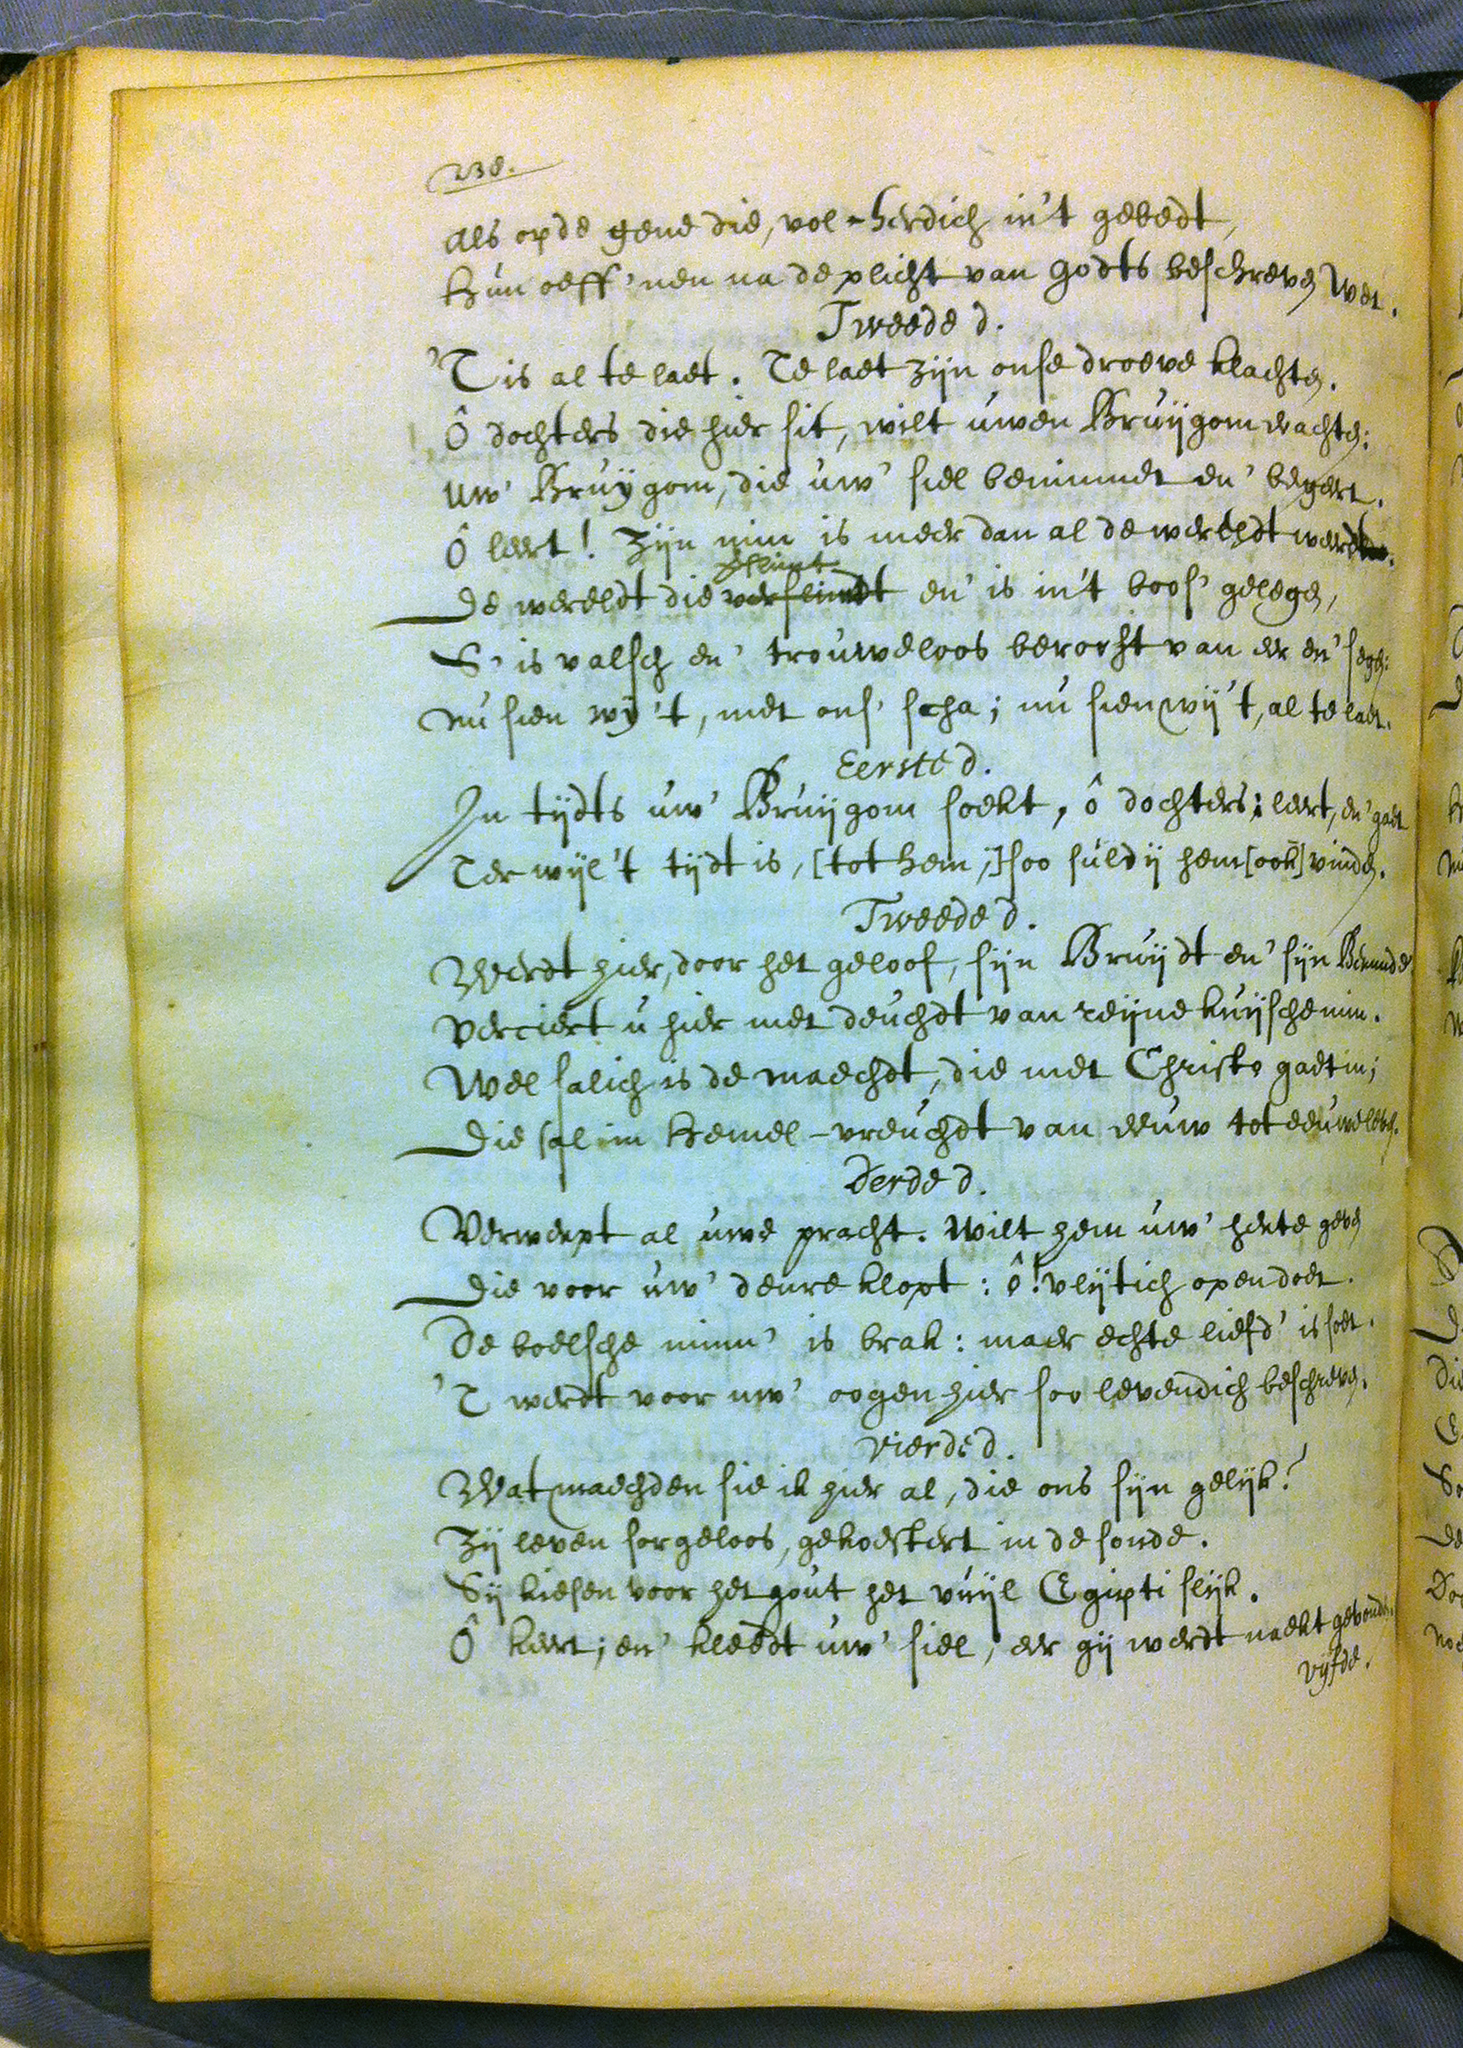 238.
als op de gene die, vol-herdich in't gebedt,
hun oeff'nen na de plicht van godts beschreven wet.
Tweede d.
'T is al te laet. Te laet zijn onse droeve klachten.
Ô dochters die hier sit, wilt uwen Bruijgom wachten:
uw' Bruijgom, die uw' siel beminnet en' begert.
Ô leert! Zijn min is meer dan al de wereldt weert.
De wereldt die verslindt en' is in't boos' gelegen,
S' is valsch en' trouweloos berooft van eer en' segen:
nu sien wij't, met ons' scha; nu sien wij't, al te laet.
Eerste d.
In tijdts uw' Bruijgom soekt, ô dochters; leert, en' gaet
Terwijl 't tijdt is, [tot hem,] soo suldij hem [ook] vinden.
Tweede d.
Werdt hier, door het geloof, sijn Bruijdt en' sijn Beminde
verciert u hier met deuchdt van reijne kuijsche min.
Wel salich is de maechdt, die met Christo gaet in;
Die sal im hemel-vreuchdt van eeuw tot eeuw leven.
Derde d.
Verwerpt al uwe pracht. Wilt hem uw' herte geven
Die voor uw' deure klopt: ô! vlijtich open doet.
De boelsche minn' is brak: maer echte liefd' is soet.
'T werdt voor uw' oogen hier soo levendich beschreven.
Vierde d.
Wat maechden sie ik hier al, die ons sijn gelijk?
Zij leven sorgeloos, gekoestert in de sonde.
Sij kiesen voor het gout het vuijl Egipti slijk.
Ô keert; en' kleedt uw' siel, eer gij werdt naekt gevonden.
vijfde.